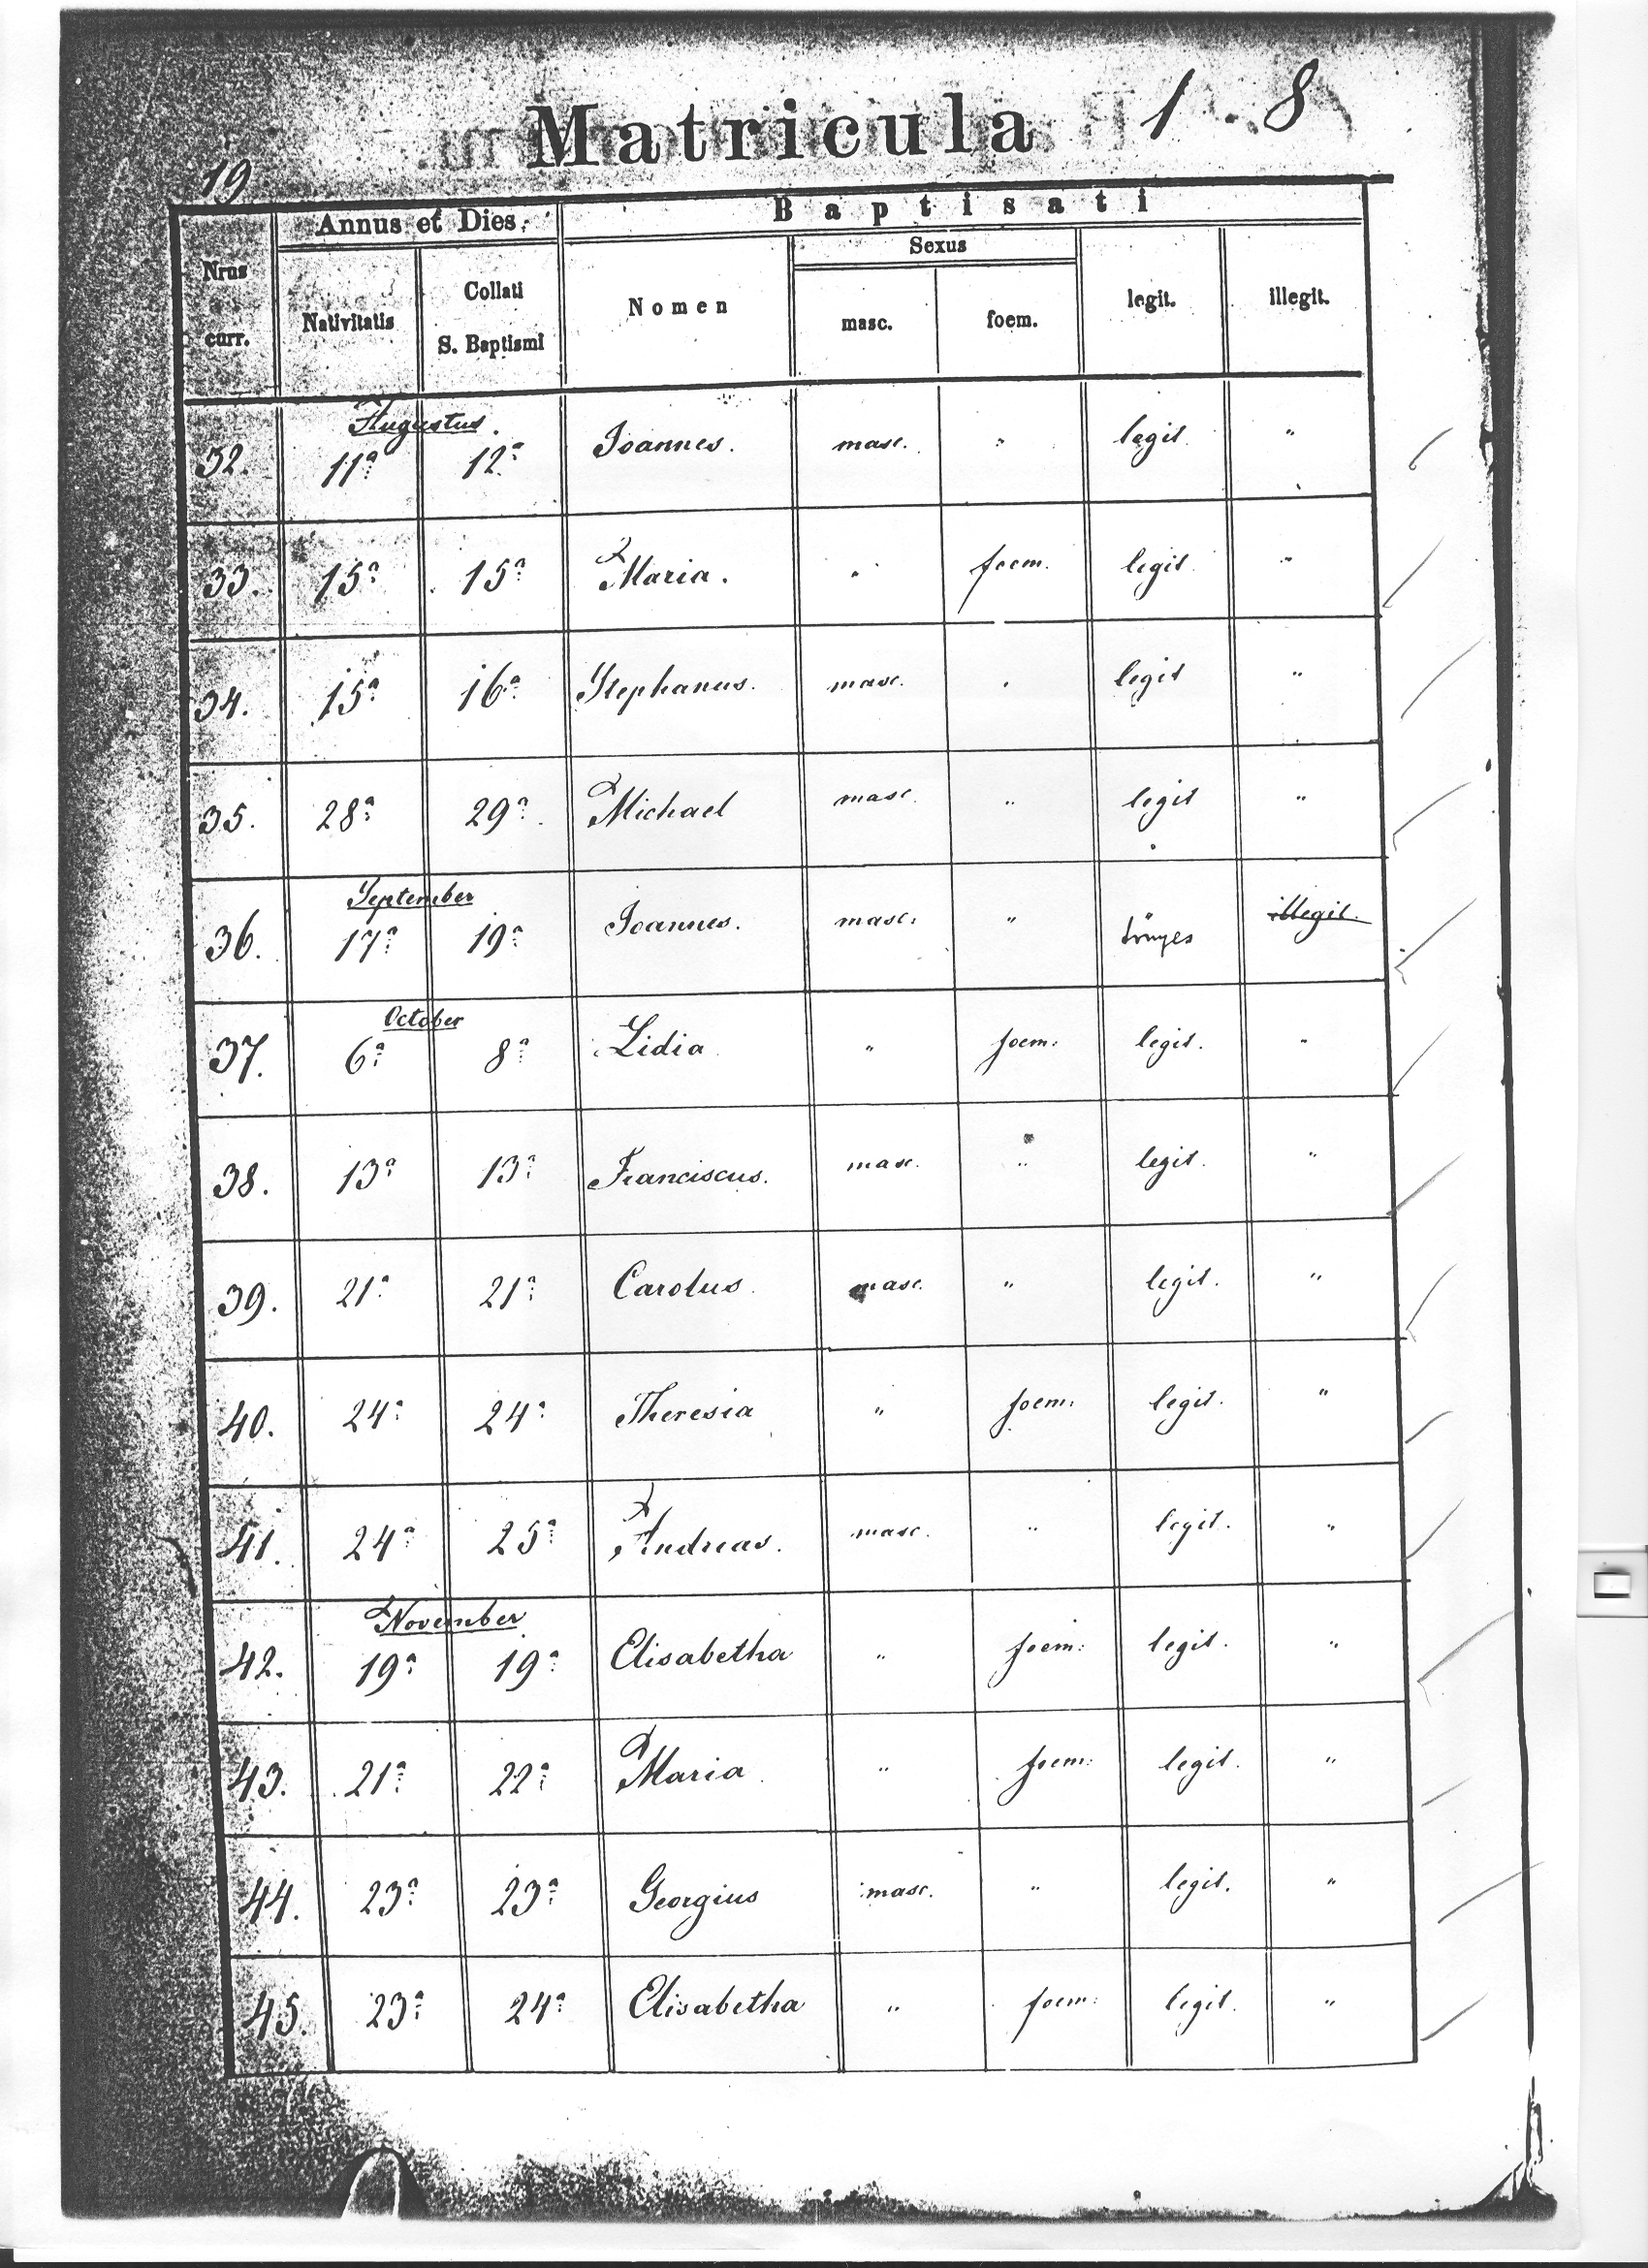 Matricula 1 8
19
Annus et Dies. Baptisati
Nrus curr. Nativitatis Collati S. Baptismi Nomen Sexus masc. foem. legit. illegit.
Augustus.
32. 11ª 12ª Joannes. masc. " legit. "
33. 15ª 15ª Maria. " foem. legit. "
34. 15ª 16ª Stephanus. masc. " legit "
35. 28ª 29ª Michael masc. " legit "
September
36. 17ª 19ª Joannes. masc: " illegit.
37. October
6ª 8ª Lidia " foem: legit. "
38. 13ª 13ª Franciscus. masc. " legit. "
39. 21ª 21ª Carolus. masc. " legit. "
40. 24ª 24ª Theresia " foem: legit. "
41. 24ª 25ª Andreas. masc. " legit. "
November
42. 19ª 19ª Elisabetha " foem: legit. "
43. 21ª 22ª Maria " foem: legit. "
44. 23ª 23ª Georgius masc. " legit. "
45. 23ª 24ª Elisabetha " foem: legit. "